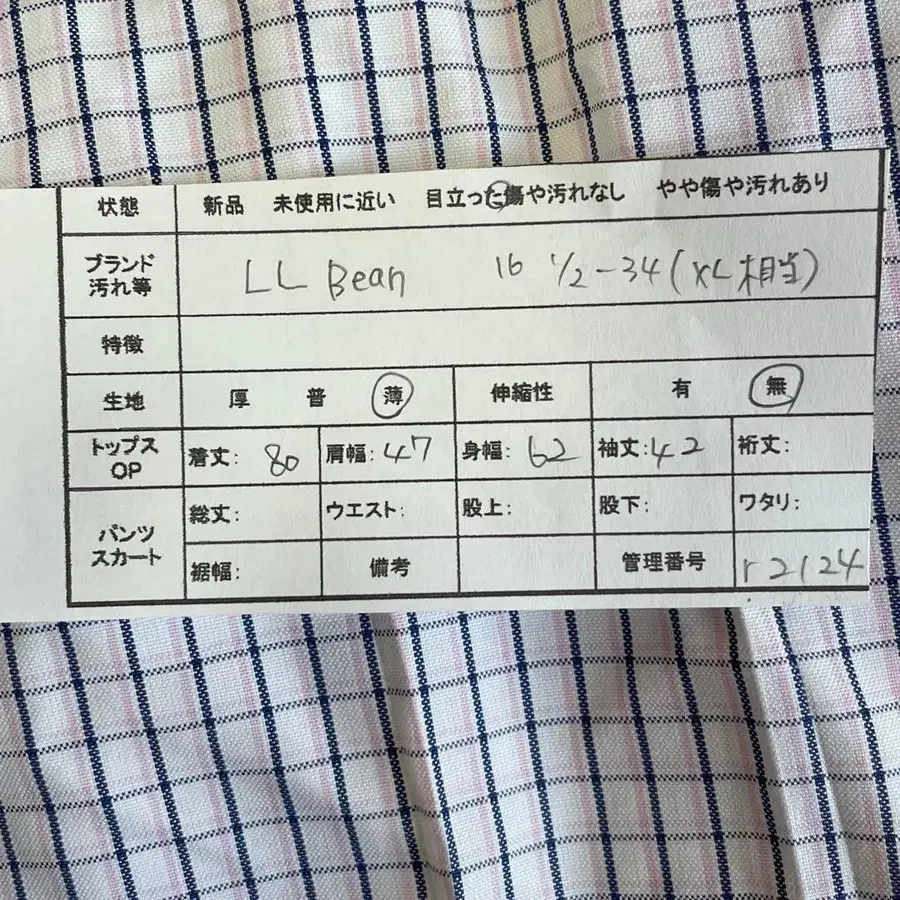 状態 新品 未使用に近い 目立った傷や汚れなし やや傷や汚れあり
ブランド
汚れ等 LL Bean 16 1/2-34(XL相当)
特徴
生地 厚 普 薄 伸縮性 有 無
トップス
OP 着丈: 80 肩幅: 47 身幅: 62 袖丈: 42 裄丈:
パンツ
スカート 総丈: ウエスト: 股上: 股下: ワタリ:
裾幅: 備考 管理番号 r2124